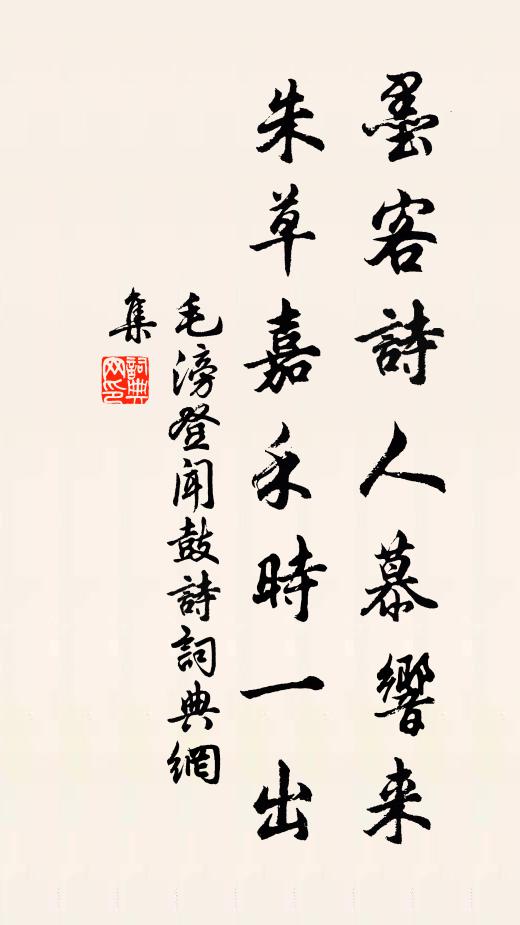 墨客詩人慕響来
朱草嘉禾時一出
毛滂登聞鼓詩詞典網
集
詞典
网印